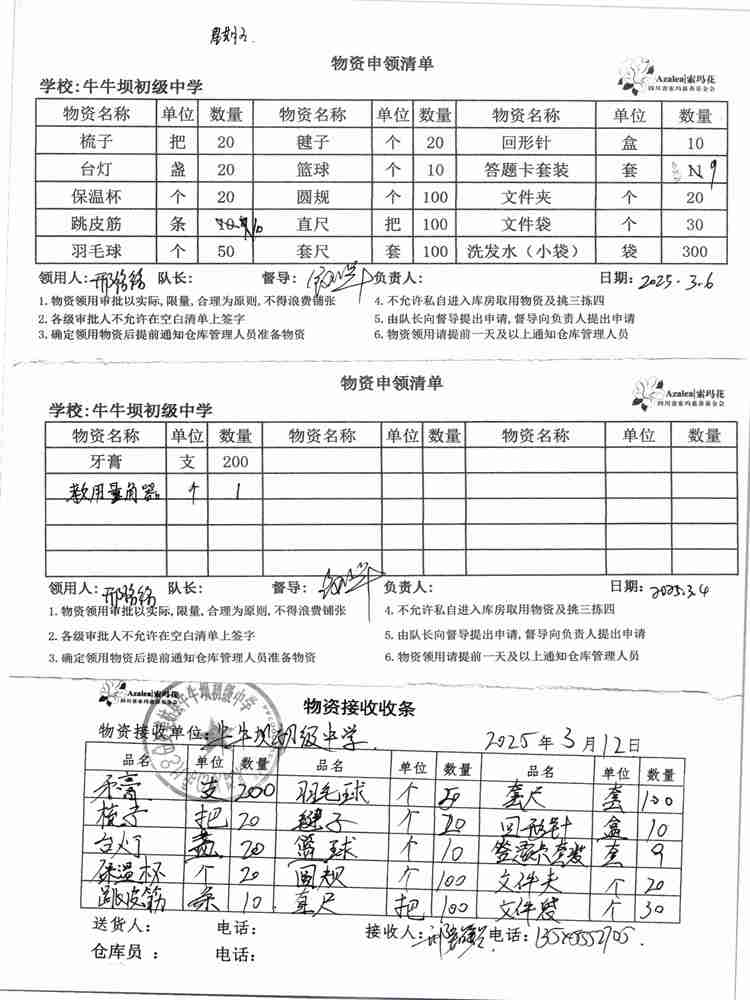 星期五.
物资申领清单
Azalea|索玛花
四川省索玛慈善基金会
学校:牛牛坝初级中学
物资名称 单位 数量 物资名称 单位 数量 物资名称 单位 数量
梳子 把 20 毽子 个 20 回形针 盒 10
台灯 盏 20 篮球 个 10 答题卡套装 套 9
保温杯 个 20 圆规 个 100 文件夹 个 20
跳皮筋 条 10 直尺 把 100 文件袋 个 30
羽毛球 个 50 套尺 套 100 洗发水（小袋） 袋 300
领用人: 队长: 督导: 负责人: 日期: 2025.3.6
1.物资领用审批以实际,限量,合理为原则,不得浪费铺张 4.不允许私自进入库房取用物资及挑三拣四
2.各级审批人不允许在空白清单上签字 5.由队长向督导提出申请,督导向负责人提出申请
3.确定领用物资后提前通知仓库管理人员准备物资 6.物资领用请提前一天及以上通知仓库管理人员
物资申领清单
Azalea|索玛花
四川省索玛慈善基金会
学校:牛牛坝初级中学
物资名称 单位 数量 物资名称 单位 数量 物资名称 单位 数量
牙膏 支 200
教用量角器 个 1
领用人: 队长: 督导: 负责人: 日期: 2025.3.4
1.物资领用审批以实际,限量,合理为原则,不得浪费铺张 4.不允许私自进入库房取用物资及挑三拣四
2.各级审批人不允许在空白清单上签字 5.由队长向督导提出申请,督导向负责人提出申请
3.确定领用物资后提前通知仓库管理人员准备物资 6.物资领用请提前一天及以上通知仓库管理人员
Azalea|索玛花
物资接收收条
物资接收单位: 牛牛坝初级中学. 2025年3月12日
品名 单位 数量 品名 单位 数量 品名 单位 数量
牙膏 支 200 羽毛球 个 50 套尺 套 100
梳子 把 20 毽子 个 20 回形针 盒 10
台灯 盏 20 篮球 个 10 答题卡套装 套 9
保温杯 个 20 圆规 个 100 文件夹 个 20
跳皮筋 条 10. 直尺 把 100 文件袋 个 30
送货人： 电话： 接收人: 电话:
仓库员： 电话：